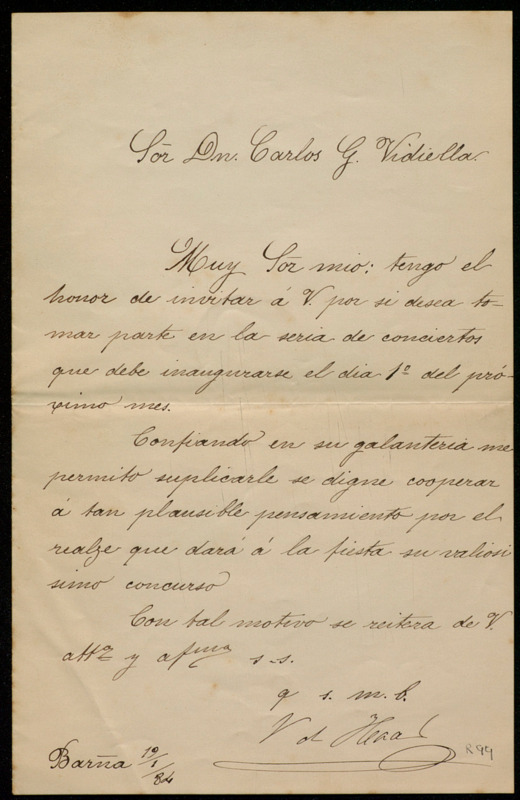 Sōr Dn. Carlos G. Vidiella.
Muy Sōr mio: tengo el
honor de invitar á V. por si desea to-
mar parte en la seria de conciertos
que debe inaugurarse el dia 1º del pró-
ximo mes.
Confiando en su galanteria me
permito suplicarle se digne cooperar
á tan plausible pensamiento por el
realze que dará á la fiesta su valiosi
simo concurso
Con tal motivo se reitera de V.
y s.s.
q s. m. b.
Barña 19/1/84
R 99